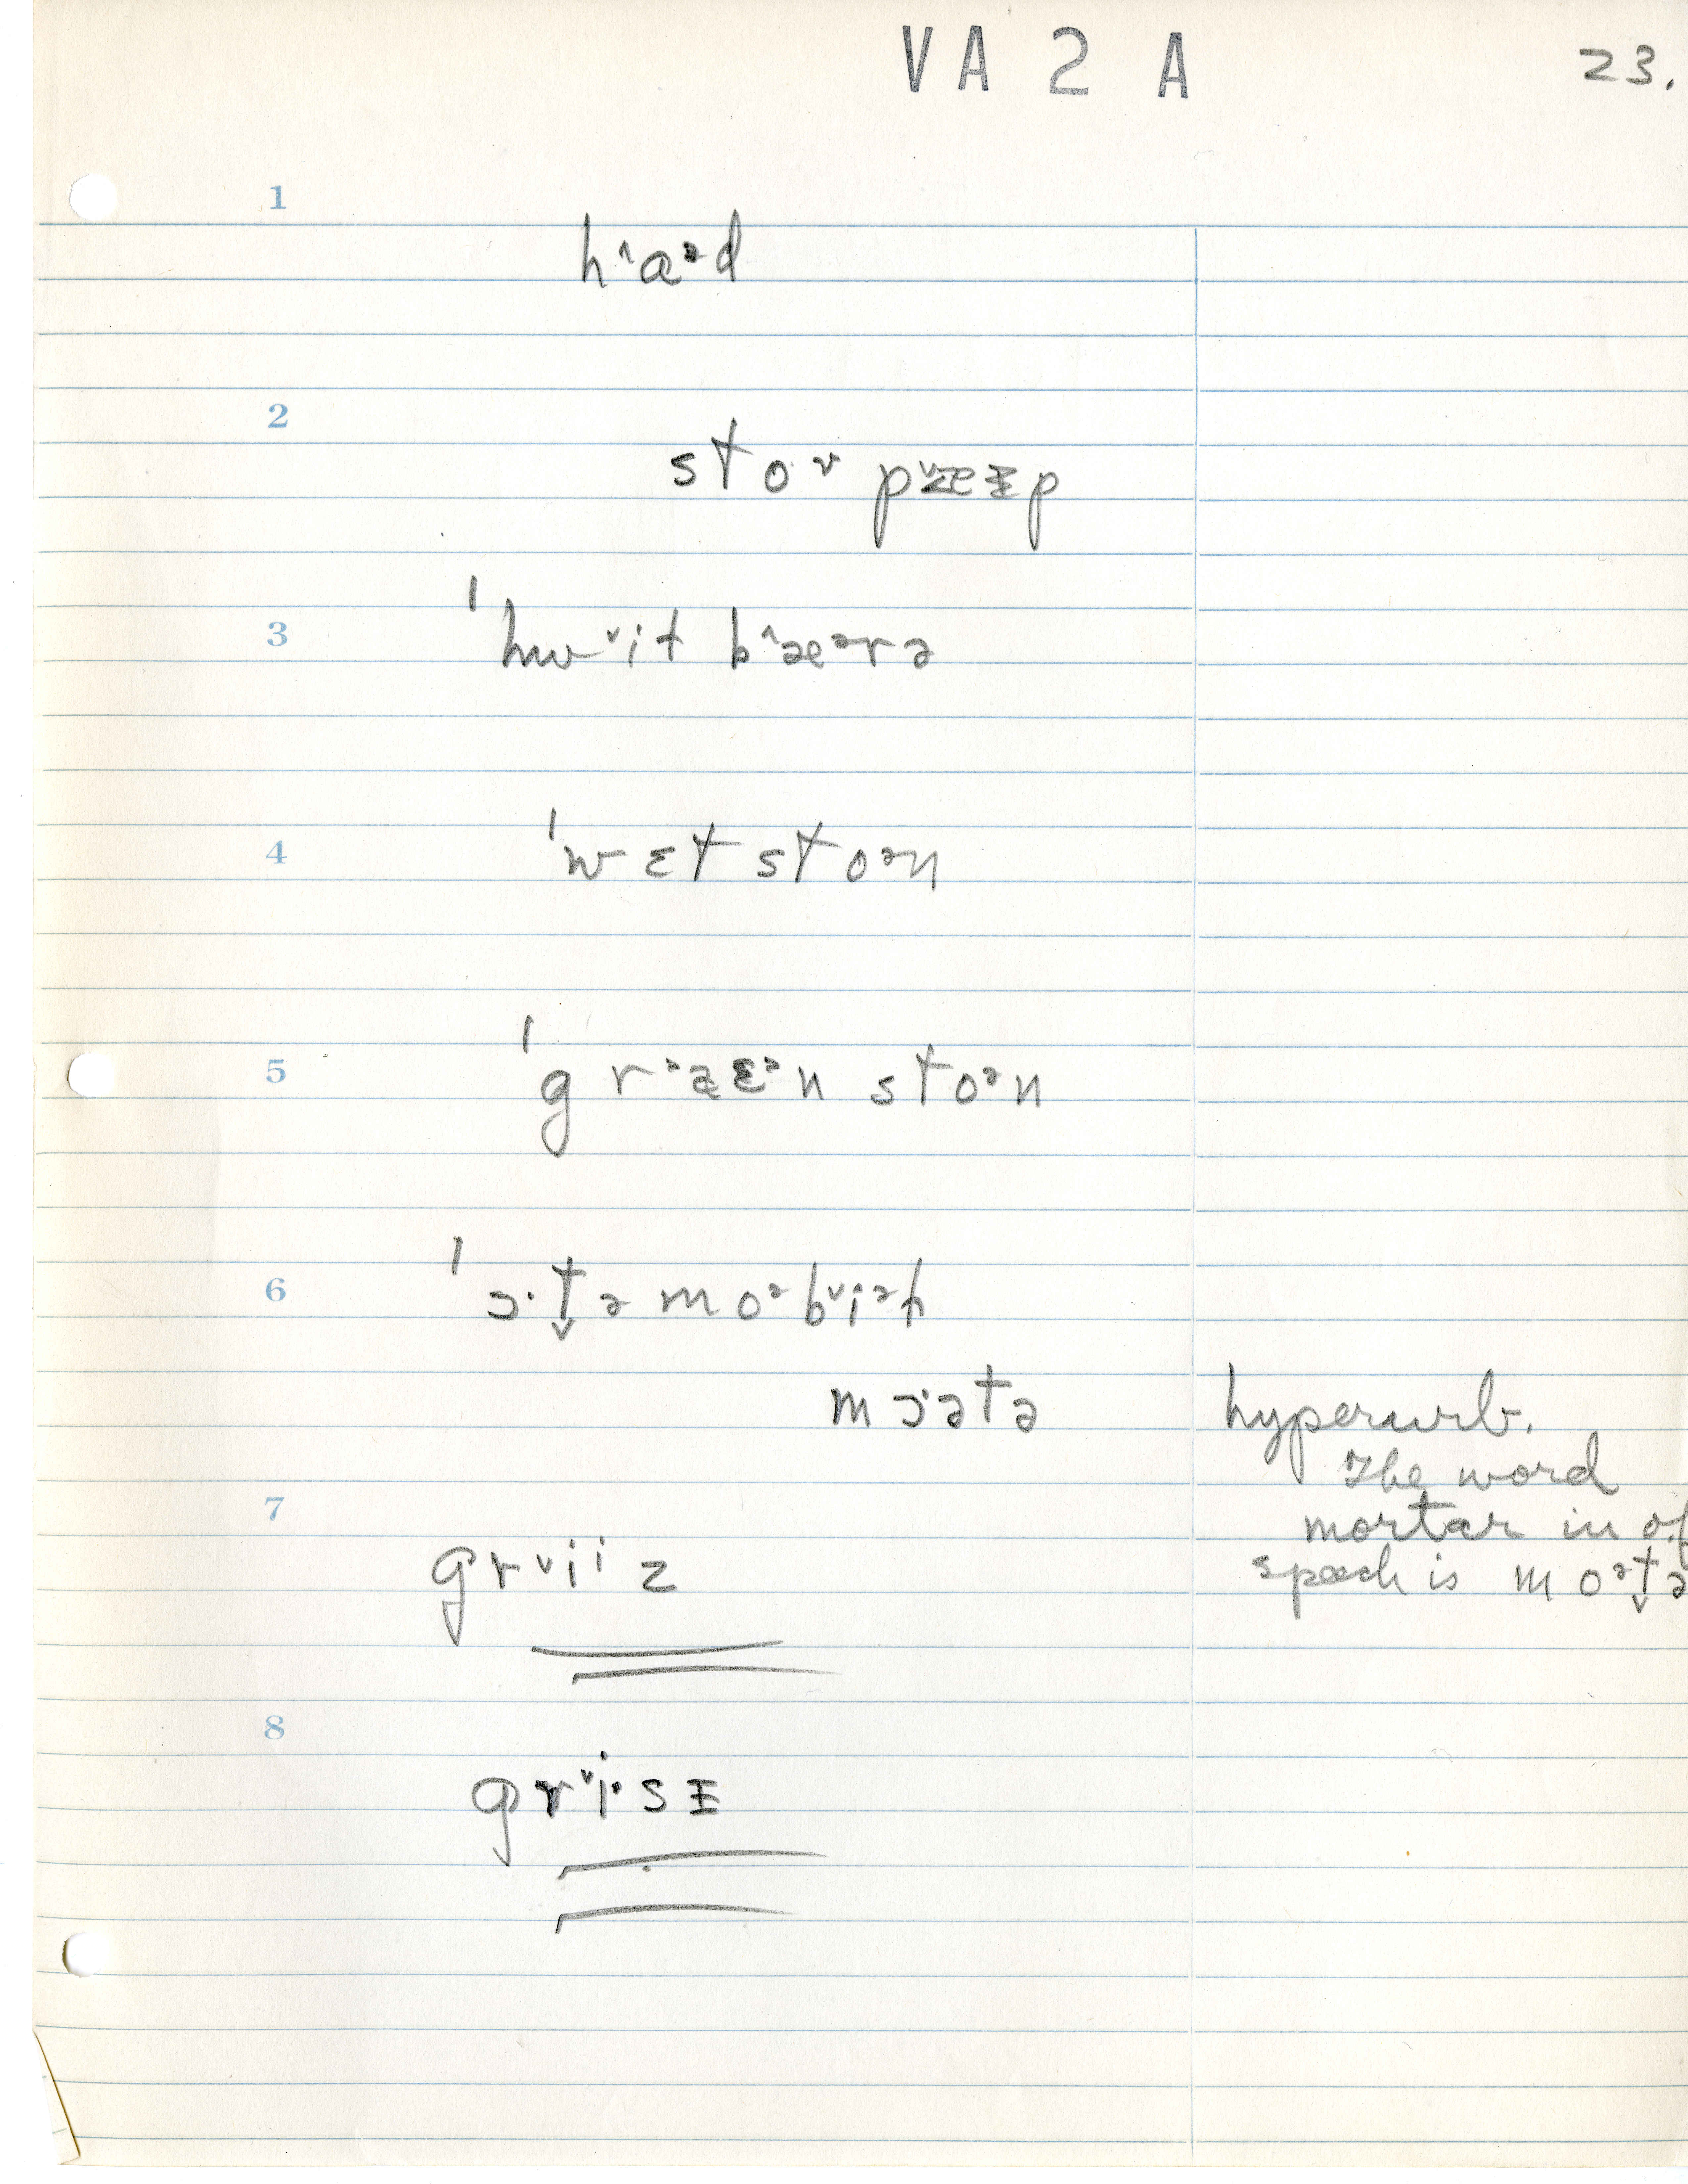 VA 2 A
23.
1
h˄aᵊd
2
stoᵛ p˅æᵻp
3
ˈhw˅it b˄æᵊrə
4
ˈwɛt stoᵊn
5
ˈg rᵊa̵ɛᵊn stoᵊn
6
ˈɔ·t̬ə moᵊb˅iᵊɫ
mɔ·ətə
hyperurb.
The word
mortar in of
speech is moᵊt̬ə
7
gr˅iⁱz
8
gr˅i·sᵻ